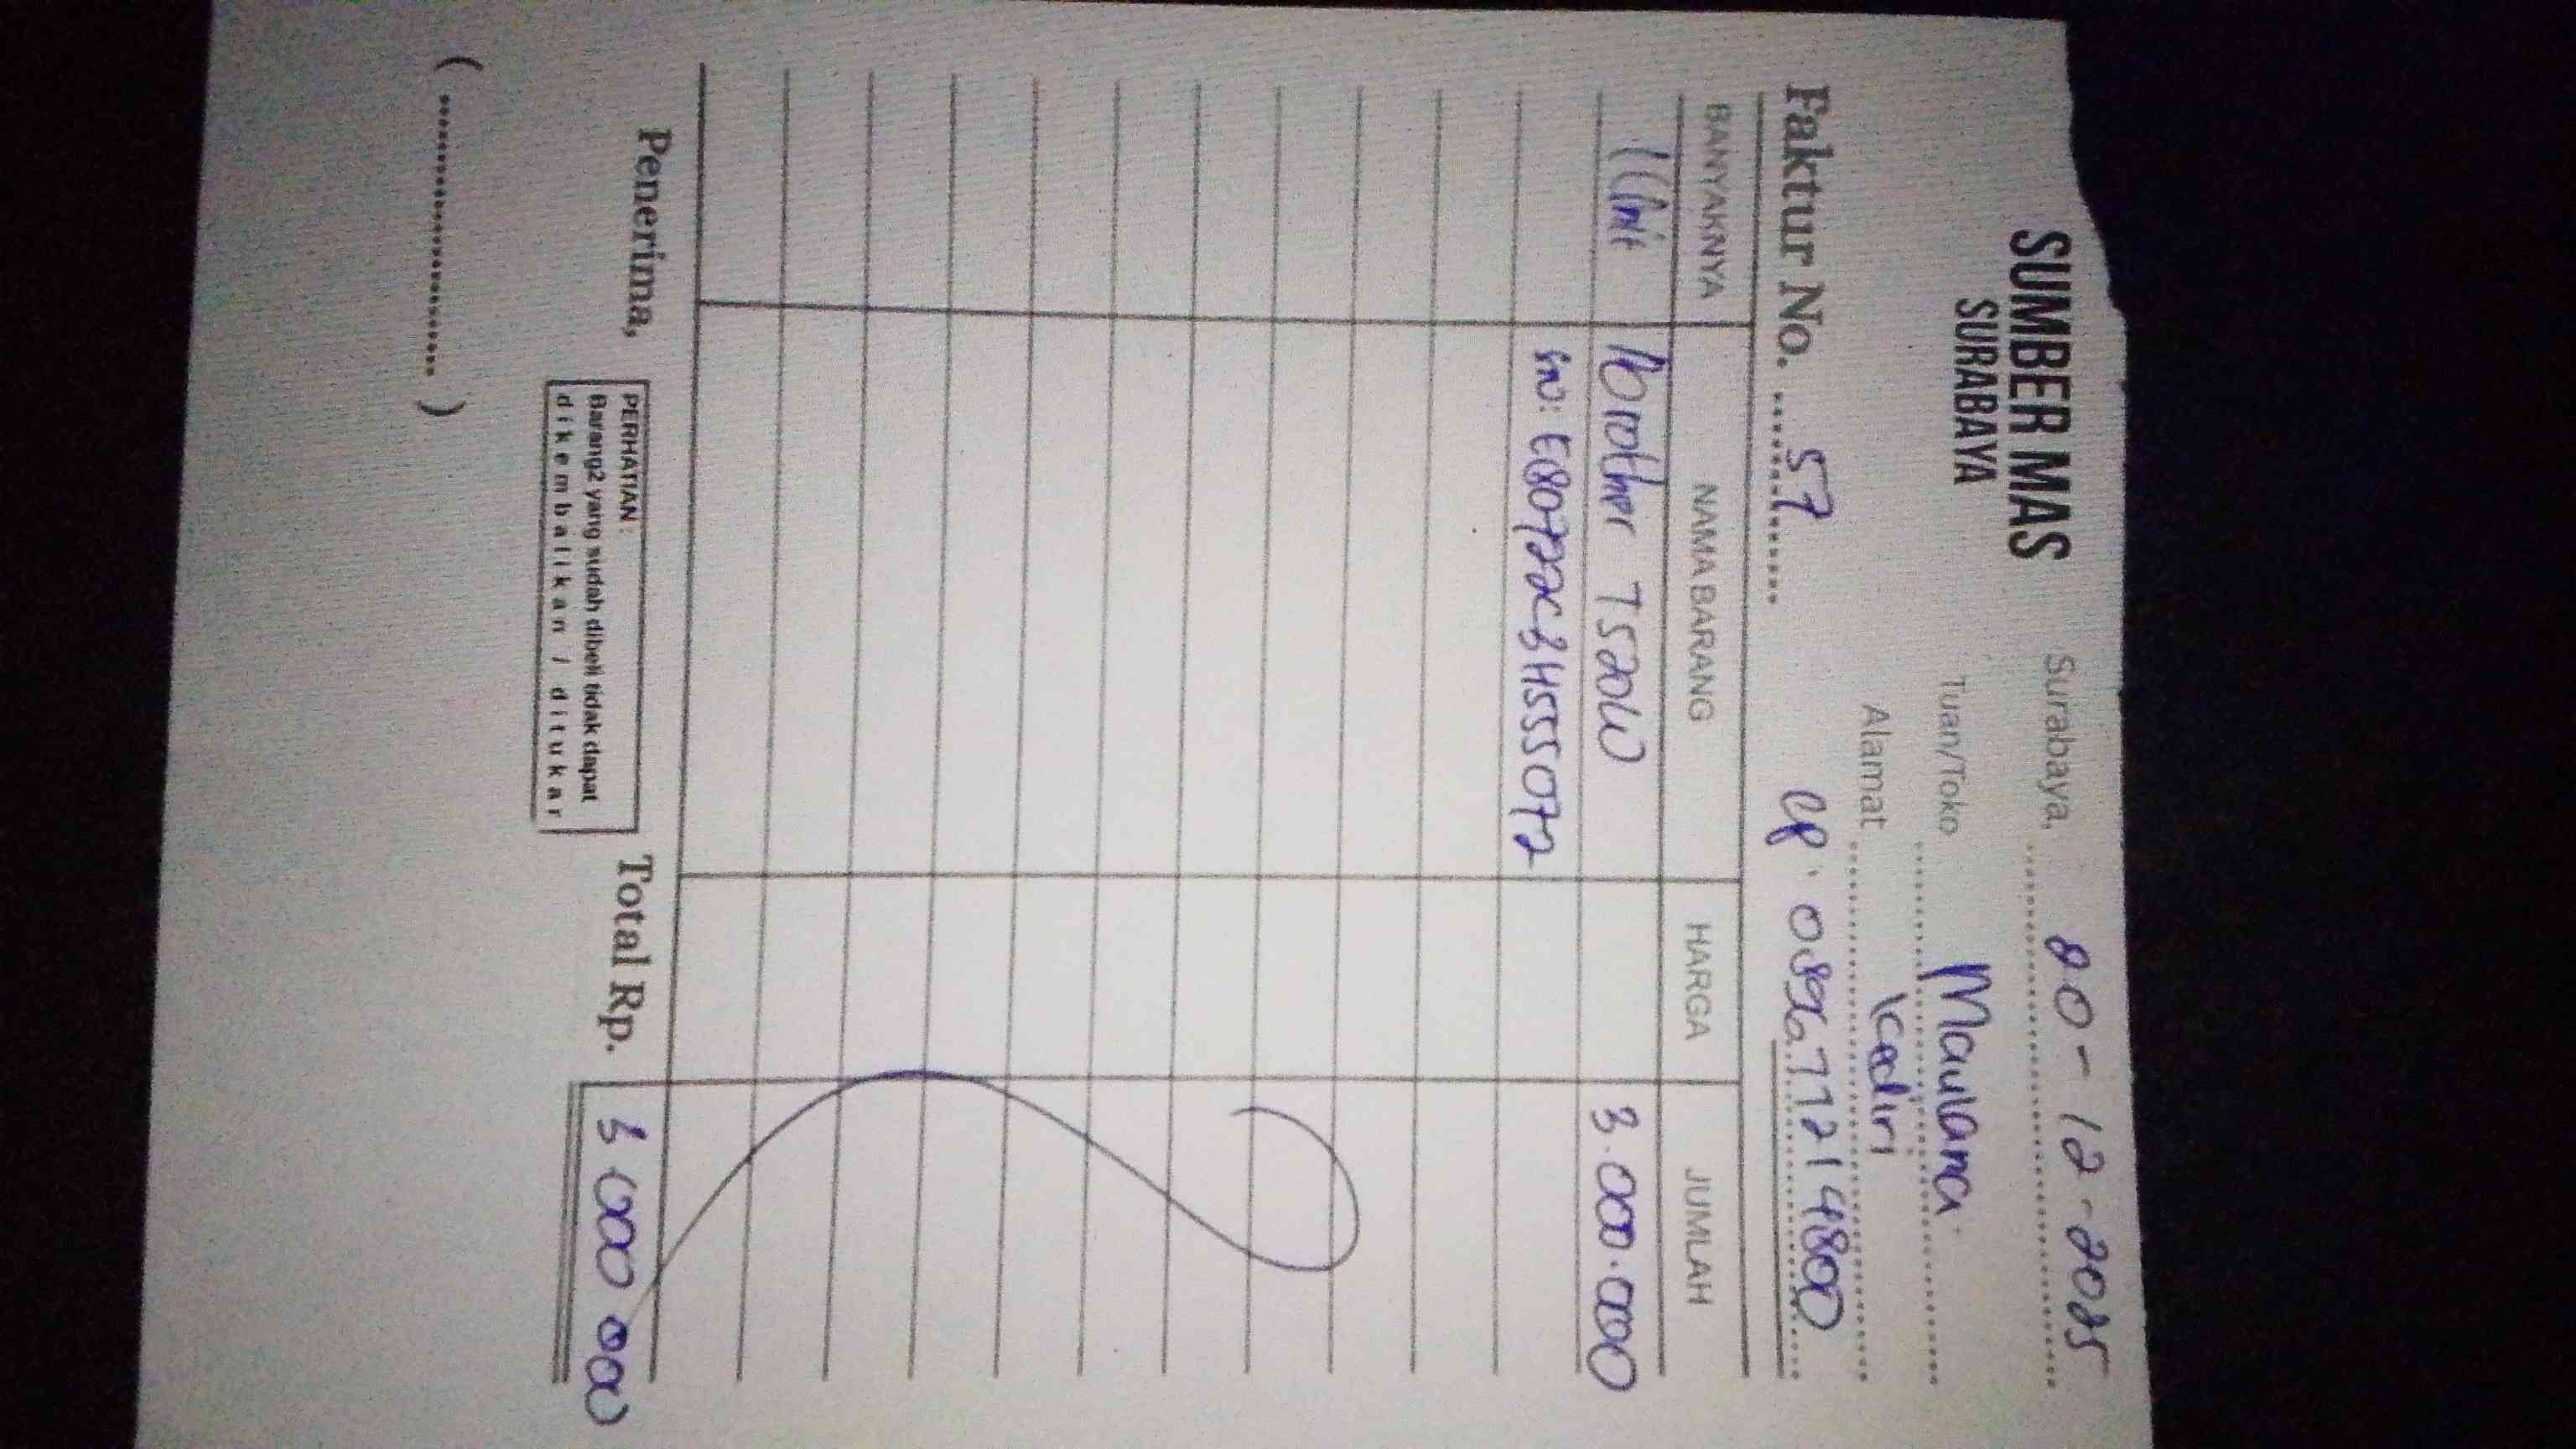 SUMBER MAS
SURABAYA
Surabaya, 20-12-2025
Tuan/Toko Maulana
Alamat Kediri
Faktur No. 57
CP. 089677214800
BANYAKNYA NAMA BARANG HARGA JUMLAH
1 Unit Brother T520W 3.000.000
SN: E80722C3H555072
Penerima,
PERHATIAN:
Barang2 yang sudah dibeli tidak dapat
dikembalikan / ditukar
Total Rp. 3 000 000
(........................)